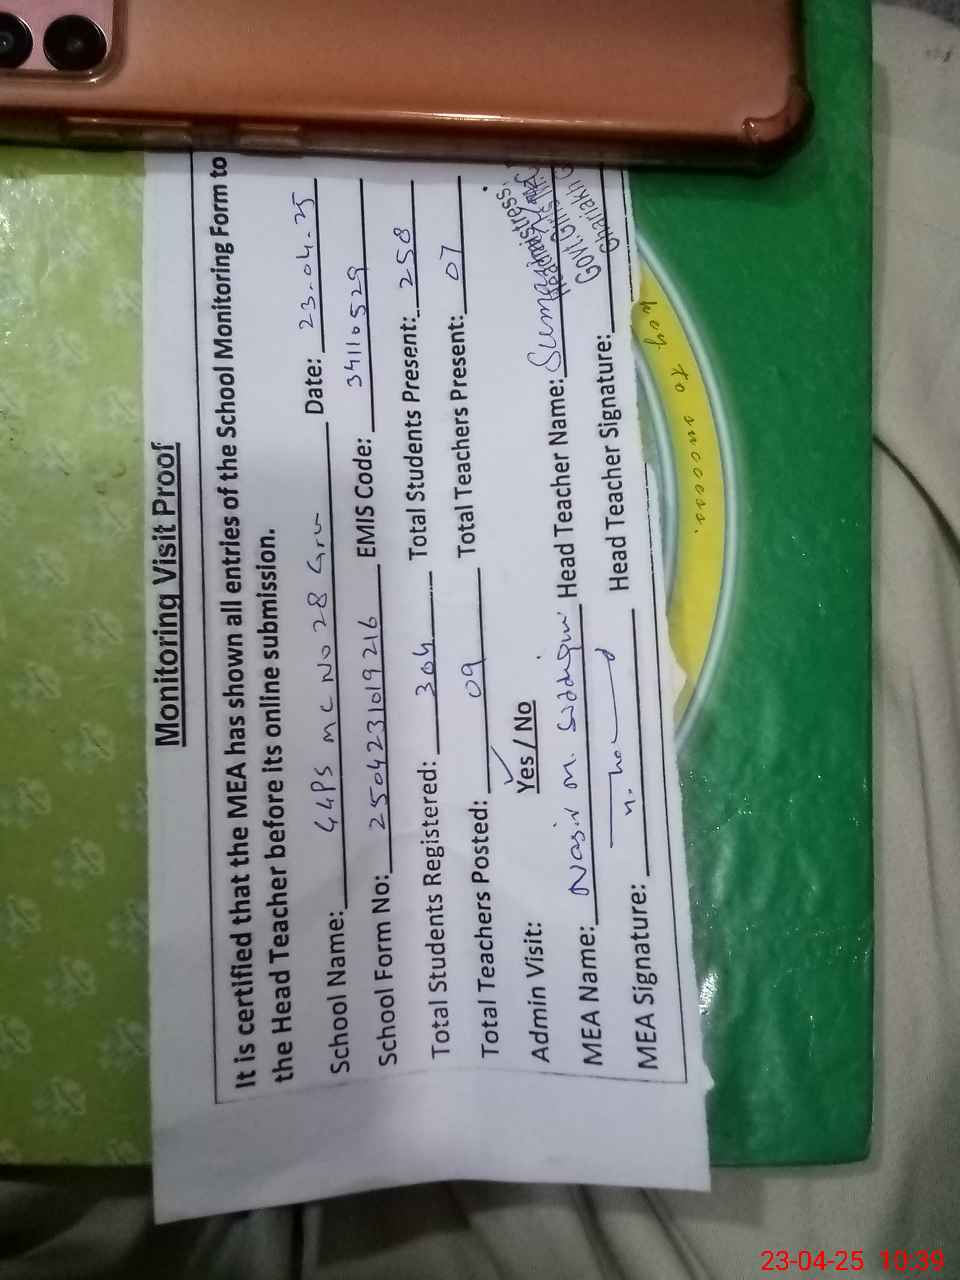 Monitoring Visit Proof
It is certified that the MEA has shown all entries of the School Monitoring Form to
the Head Teacher before its online submission.
School Name: GGPS MC No 28 Grw Date: 23-04-25
School Form No: 2504231019216 EMIS Code: 34110529
Total Students Registered: 304 Total Students Present: 258
Total Teachers Posted: 09 Total Teachers Present: 07
Admin Visit: Yes / No
MEA Name: Nasir M. Siddiqui Head Teacher Name:
MEA Signature: Head Teacher Signature:
Headmistress,
Govt. Girls
key to success.
23-04-25 10:39